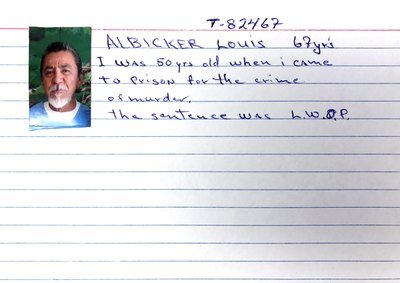 T-82467
ALBICKER LOUIS 67yrs
I was 50 yrs old when i came
to prison for the crime
of murder.
the sentence was L.W.O.P.